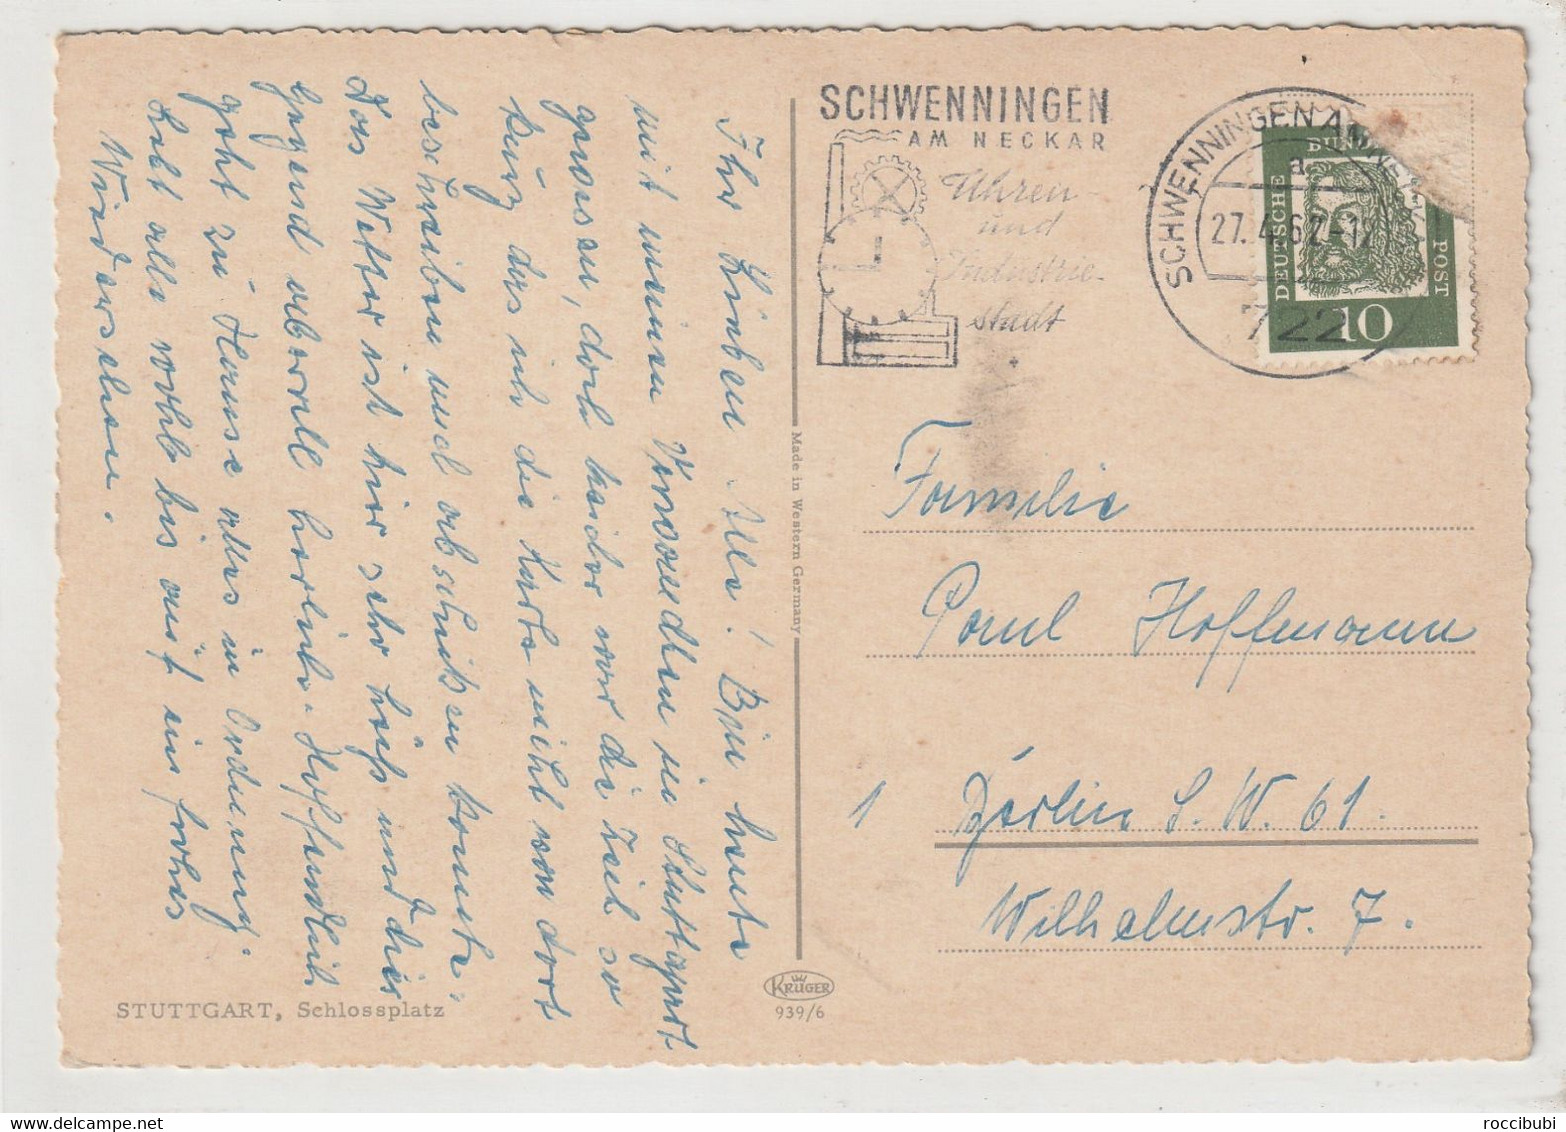 Ihr Lieben Alle! Bin heute
mit meinen Verwandten in Stuttgart
gewesen, doch leider war die Zeit so
kurz das ich die Karte nicht von dort
beschreiben und abschicken konnte.
Das Wetter ist hier sehr heiß und die
Gegend überall herrlich. Hoffentlich
geht zu Hause alles in Ordnung.
Lebt alle wohl bis auf ein frohes
Wiedersehen.
STUTTGART, Schlossplatz
Made in Western Germany
KRÜGER
939/6
SCHWENNINGEN
AM NECKAR
Uhren-
und
Industrie-
stadt
SCHWENNINGEN AM NECKAR
a
27.4.62-12
722
DEUTSCHE
BUND
POST
10
Familie
Paul Hoffmann
1 Berlin S.W. 61.
Wilhelmstr. 7.
roccibubi